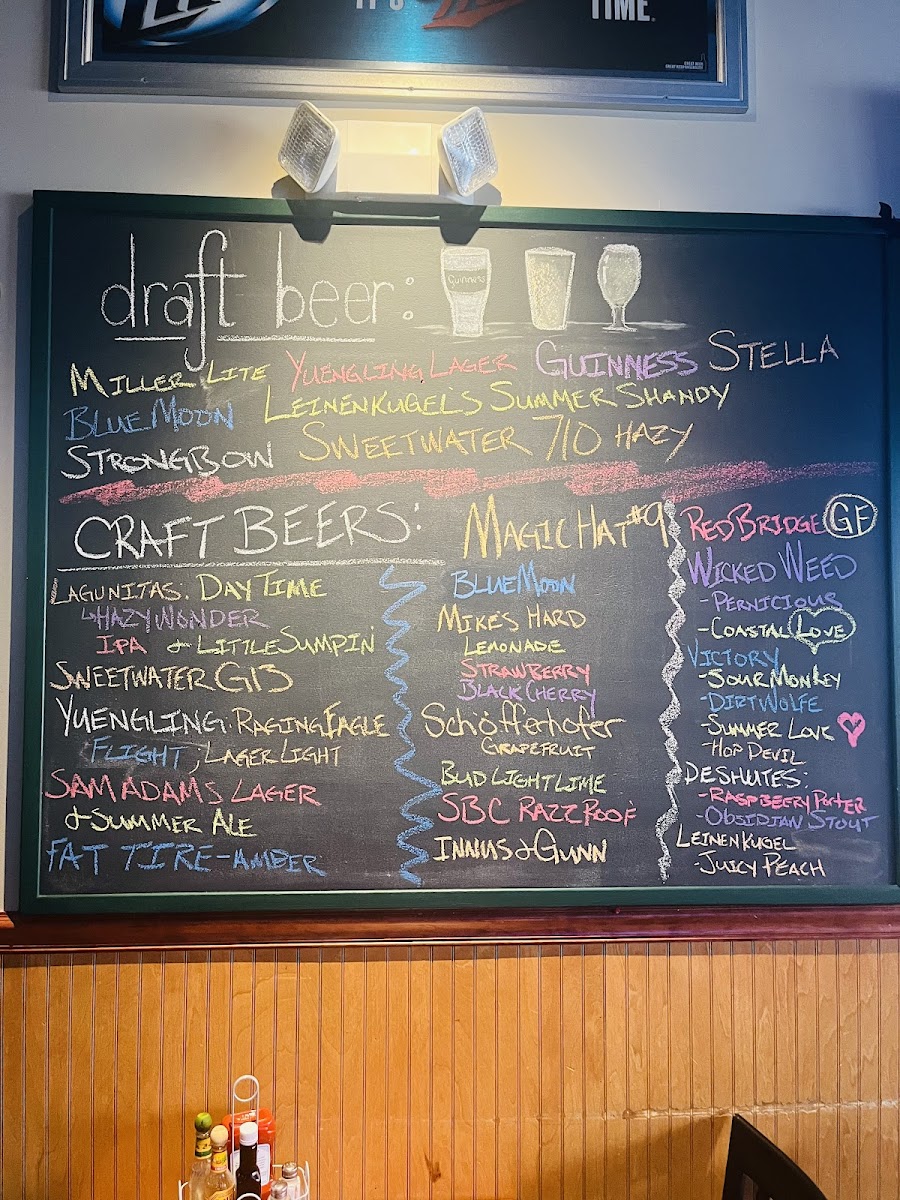 IT'S
TIME.
draft beer:
Guinness
MILLER LITE YUENGLING LAGER GUINNESS STELLA
BLUE MOON LEINENKUGEL'S SUMMER SHANDY
STRONGBOW SWEETWATER 710 HAZY
CRAFT BEERS:
LAGUNITAS. DAYTIME
HAZY WONDER
IPA & LITTLE SUMPIN'
SWEETWATER G13
YUENGLING. RAGING EAGLE
FLIGHT, LAGER LIGHT
SAM ADAMS LAGER
& SUMMER ALE
FAT TIRE-AMBER
MAGIC HAT #9
BLUE MOON
MIKE'S HARD
LEMONADE
STRAWBERRY
BLACK CHERRY
Schöfferhofer
GRAPEFRUIT
BUD LIGHT LIME
SBC RAZZ ROOF
INNIS & GUNN
RED BRIDGE GF
WICKED WEED
-PERNICIOUS
-COASTAL LOVE
VICTORY
-SOUR MONKEY
-DIRTWOLFE
-SUMMER LOVE
-HOP DEVIL
DESHUTES:
-RASPBERRY PORTER
-OBSIDIAN STOUT
LEINENKUGEL
-JUICY PEACH